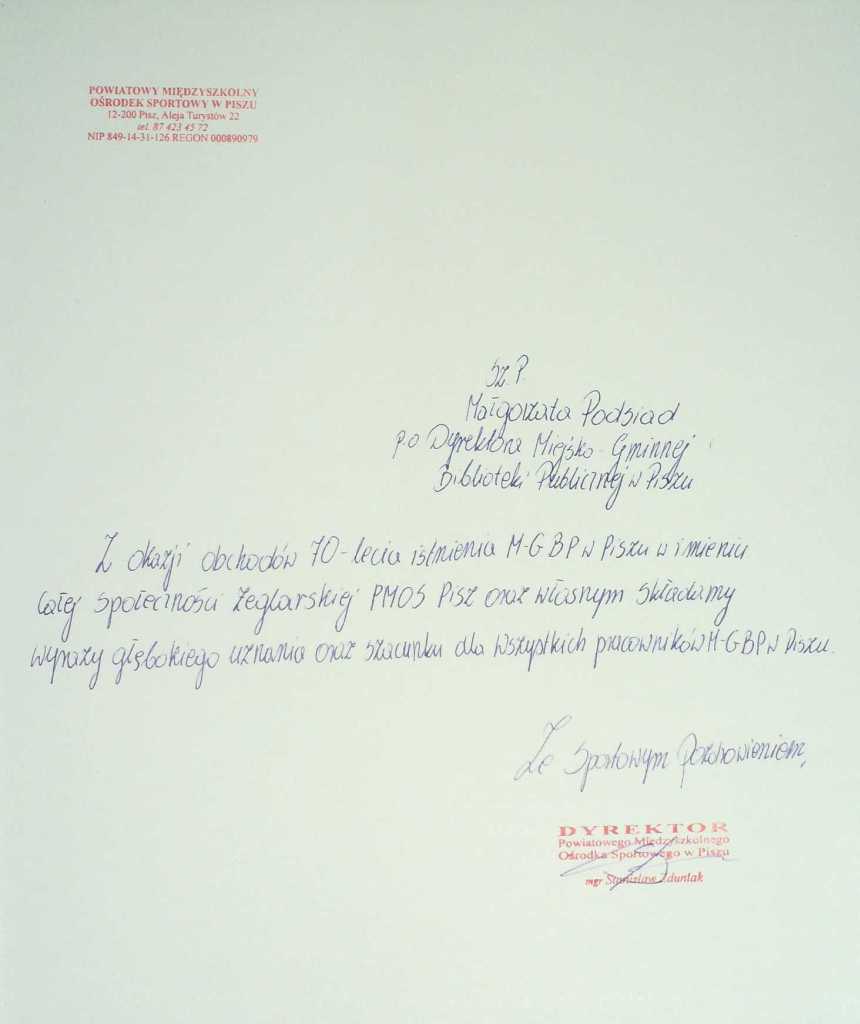 POWIATOWY MIĘDZYSZKOLNY
OŚRODEK SPORTOWY W PISZU
12-200 Pisz, Aleja Turystów 22
tel. 87 423 45 72
NIP 849-14-31-126 REGON 000890979
Sz. P.
Małgorzata Podsiad
p.o Dyrektora Miejsko-Gminnej
Biblioteki Publicznej w Piszu
Z okazji obchodów 70-lecia istnienia M-GBP w Piszu w imieniu
całej społeczności żeglarskiej PMOS Pisz oraz własnym składamy
wyrazy głębokiego uznania oraz szacunku dla wszystkich pracowników M-GBP w Piszu.
Ze Sportowym Pozdrowieniem,
DYREKTOR
Powiatowego Międzyszkolnego
Ośrodka Sportowego w Piszu
mgr Stanisław Zduniak